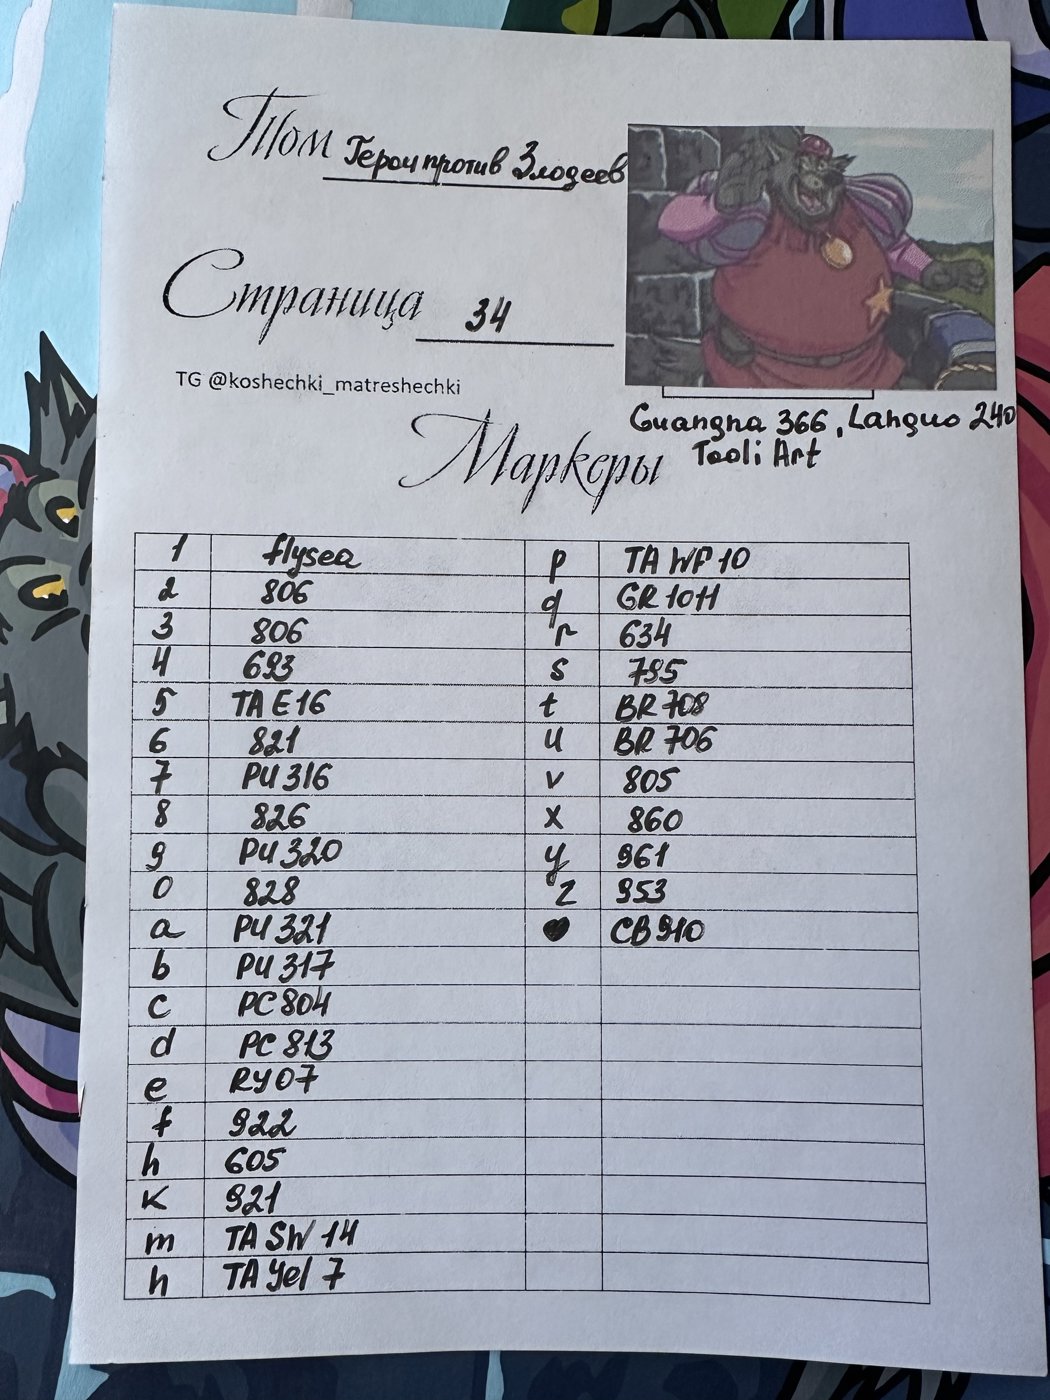 Том Герои против Злодеев
Страница 34
TG @koshechki_matreshechki
Guangna 366, Languo 240
Tooli Art
Маркеры
1 flysea p TA WP 10
2 806 q GR 1011
3 806 r 634
4 693 s 795
5 TA E16 t BR 708
6 821 u BR 706
7 PU 316 v 805
8 826 x 860
9 PU 320 y 961
0 828 z 953
a PU 321 ♥ CB 910
b PU 317
c PC 804
d PC 813
e RY07
f 922
h 605
k 921
m TA SW 14
n TA Yel 7